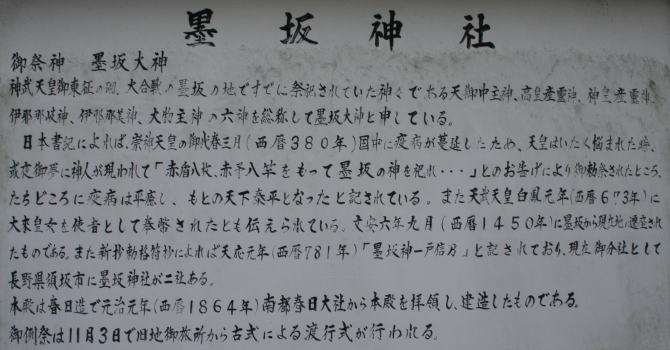 墨坂神社
御祭神 墨坂大神
神武天皇御東征の砌、大合戦の墨坂の地ですでに祭祀されていた神々である天御中主神、高皇産霊神、神皇産霊神、
伊那那岐神、伊那那美神、大物主神の六神を総称して墨坂大神と申している。
日本書記によれば、崇神天皇の御代春三月(西暦380年)国中に疫病が蔓延したため、天皇はいたく悩まれた時、
或夜御夢に神人が現われて「赤盾八枚、赤矛八竿をもって墨坂の神を祀れ・・・」とのお告げにより御勅祭されたところ、
たちどころに疫病は平癒し、もとの天下泰平となったと記されている。また天武天皇白鳳元年(西暦673年)に
大来皇女を使者として奉幣されたとも伝えられている。文安六年九月(西暦1450年)に墨坂から現在地に遷宮され
たものである。また新抄勅格符抄によれば天応元年(西暦781年)「墨坂神一戸信乃」と記されており、現在御分社として
長野県須坂市に墨坂神社が二社ある。
本殿は春日造で元治元年(西暦1864年)南都春日大社から本殿を拝領し、建造したものである。
御例祭は11月3日で旧地御旅所から古式による渡行式が行われる。